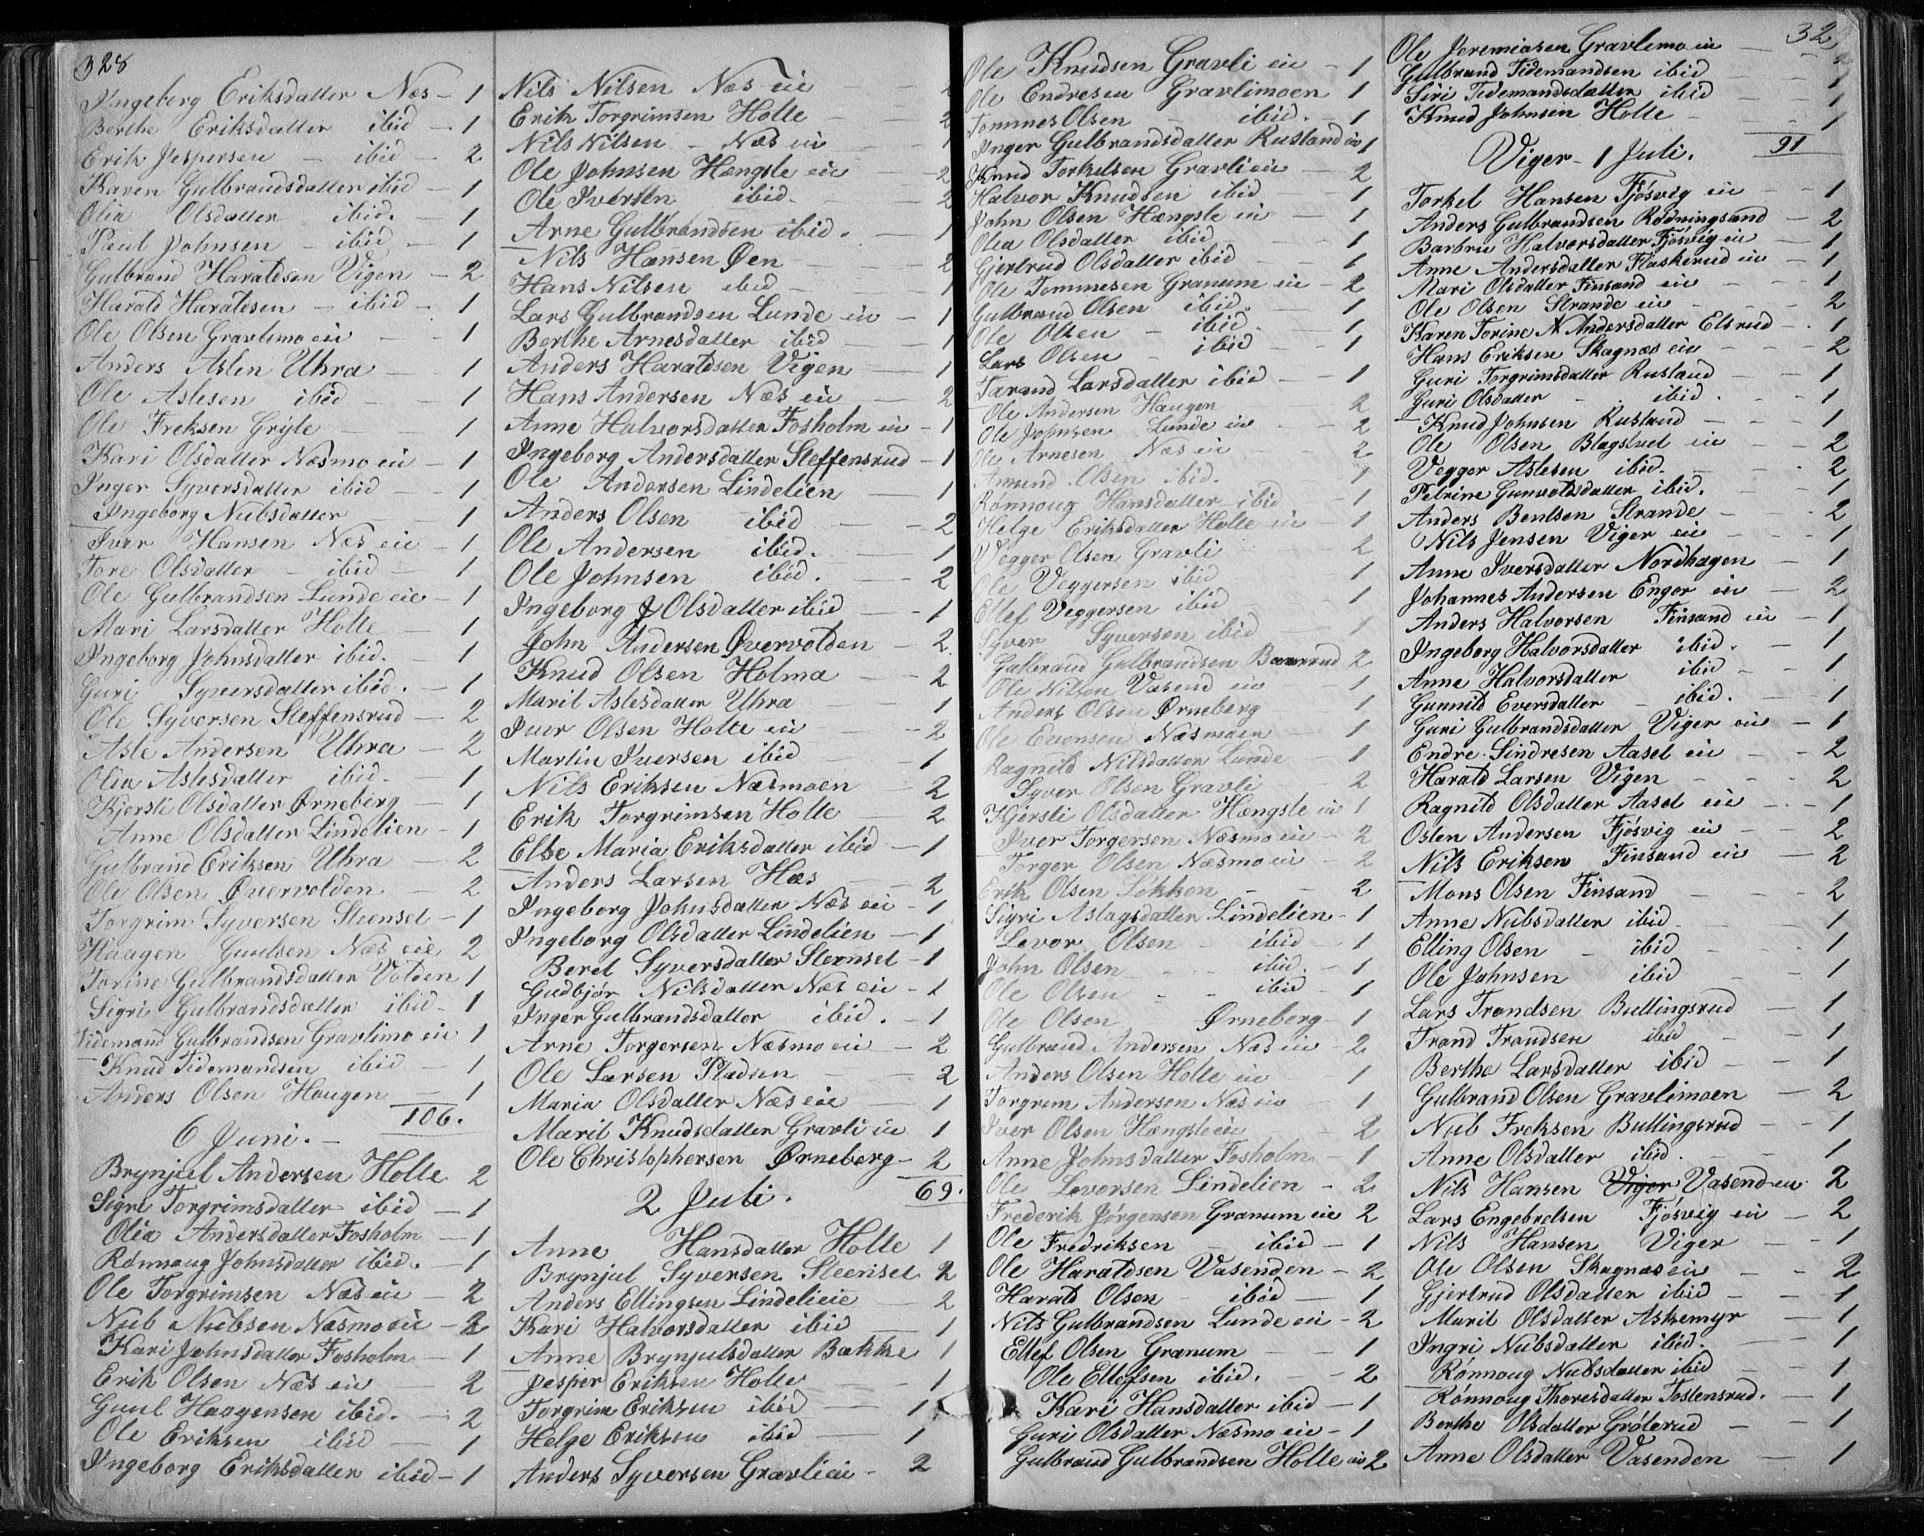 328
Ingeborg Eriksdatter Næs - 1
Berthe Eriksdatter ibid - 1
Erik Jespersen - ibid - 2
Karen Gulbrandsdatter ibid - 1
Olia Olsdatter ibid. - 1
Paul Johnsen - ibid - 1
Gulbrand Haraldsen Vigen - 2
Harald Haraldsen - ibid - 1
Ole Olsen Gravlimo eie - 1
Anders Aslen Uhra - 1
Ole Aslesen ibid - 1
Ole Freksen Gryte - 1
Kari Olsdatter Næsmo eie - 1
Inger Syversdatter ibid - 1
Ingeborg Nubsdatter - 1
Iver Hansen Næs eie - 1
Tore Olsdatter - ibid - 1
Ole Gulbrandsen Lunde eie - 1
Mari Larsdatter Holte - 1
Ingeborg Johnsdatter ibid. - 1
Guri Syversdatter ibid. - 1
Ole Syversen Steffensrud - 2
Asle Andersen Uhra - 2
Olia Aslesdatter ibid. - 1
Kjersti Olsdatter Ørneberg - 1
Anne Olsdatter Lindelien - 1
Gulbrand Eriksen Uhra - 2
Ole Olsen Øvervolden - 2
Torgrim Syversen Steenset - 1
Haagen Guulsen Næs eie 2
Torine Gulbrandsdatter Volden 1
Sigri Gulbrandsdatter ibid - 1
Tidemand Gulbrandsen Gravlimo eie 1
Knud Tidemandsen ibid - 1
Anders Olsen Haugen - 1
106.
6 Juni. -
Brynjul Andersen Holte 2
Sigri Torgrimsdatter ibid - 1
Olia Andersdatter Fosholm - 1
Rønnaug Johnsdatter ibid. - 1
Ole Torgrimsen Næs eie - 2
Nub Nubsen Næsmo eie - 2
Kari Johnsdatter Fosholm - 1
Erik Olsen Næs eie 2
Guul Haagensen ibid. - 2
Ole Eriksen ibid - 1
Ingeborg Eriksdatter ibid - 1
Nils Nilsen Næs eie 2
Erik Torgrimsen Holte - 2
Nils Nilsen - Næs eie - 1
Ole Johnsen Hængsle eie - 2
Ole Iversen ibid. - 2
Arne Gulbrandsen ibid. - 1
Nils Hansen Øen - 2
Hans Nilsen ibid - 1
Lars Gulbrandsen Lunde eie - 1
Berthe Arnesdatter ibid - 1
Anders Haraldsen Vigen - 1
Hans Andersen Næs eie - 2
Anne Halvorsdatter Fosholm eie - 1
Ingeborg Andersdatter Steffensrud - 1
Ole Andersen Lindelien 1
Anders Olsen ibid - 2
Ole Andersen ibid. - 1
Ole Johnsen ibid. - 2
Ingeborg Olsdatter ibid - 1
John Andersen Øvervolden - 2.
Knud Olsen Holma - 2
Marit Aslesdatter Uhra - 1
Iver Olsen Holte eie - 2
Martin Iversen ibid - 1
Nils Eriksen Næsmoen - 2
Erik Torgrimsen Holte - 2
Else Maria Eriksdatter ibid - 1
Anders Larsen Hæs - 2
Ingeborg Johnsdatter Næs eie - 1
Ingeborg Olsdatter Lindelien - 1
Beret Syversdatter Steenset - 1
Gudbjør Nilsdatter Næs eie - 1
Inger Gulbrandsdatter ibid. - 1
Arne Torgersen Næsmo eie - 2
Ole Larsen Pladsen 2
Maria Olsdatter Næs eie - 1
Marit Knudsdatter Gravli eie 1
Ole Christophersen Ørneberg - 2
69.
2 Juli.
Anne Hansdatter Holte 1
Brynjul Syversen Steenset 2
Anders Ellingsen Lindelieie 2
Kari Halvorsdatter ibid - 1
Anne Brynjulsdatter Bakke 1
Jesper Eriksen Holte 1
Torgrim Eriksen ibid - 1
Helge Eriksen ibid 1
Anders Syversen Gravli eie - 2
Ole Knudsen Gravli eie - 1
Ole Endresen Gravlimoen 1
Tommes Olsen ibid. - 1
Inger Gulbrandsdatter Rustand eie 1
Knud Torkelsen Gravli eie - 2
Halvor Knudsen ibid - 1
John Olsen Hængsle eie - 1
Olia Olsdatter ibid - 1
Gjertrud Olsdatter ibid - 1
Ole Tommesen Granum eie - 2
Gulbrand Olsen ibid. - 1
Ole Olsen - ibid. - 1
Lars Olsen - ibid - 1
Tarand Larsdatter ibid - 1
Ole Andersen Haugen 2
Ole Johnsen Lunde eie - 2
Ole Arnesen Næs eie 2
Amund Olsen ibid. 1
Rønnoug Hansdatter ibid - 1
Helge Eriksdatter Holte eie 1
Vegger Olsen Gravli 2
Ole Veggersen ibid 1
Ellef Veggersen ibid - 1
Syver Syversen ibid - 1
Gulbrand Gulbrandsen Baarrud 2
Ole Nilsen Vasend eie 1
Anders Olsen Ørneberg 1
Ole Evensen Næsmoen - 1
Ragnild Nilsdatter Lunde 1
Syver Olsen Gravli 2
Kjersti Olsdatter Hængsle eie 1
Iver Torgersen Næsmo eie - 2
Torger Olsen Næsmo eie - 2
Erik Olsen Løkken - - 2
Sigri Aslagsdatter Lindelien - 1
Levor Olsen - ibid - 1
John Olsen - - ibid. - 1
Ole Olsen - - ibid - 1
Ole Olsen Ørneberg - 1
Gulbrand Andersen Næs eie - 2
Anders Olsen Holte eie 1
Torgrim Andersen Næs eie - 1
Iver Olsen Hængsle eie 2
Anne Johnsdatter Fosholm - 1
Ole Levorsen Lindelien - 2
Frederik Jørgensen Granum eie 2
Ole Fredriksen - ibid - 1
Ole Haraldsen Vasenden - 2
Harald Olsen - ibid - 1
Nils Gulbrandsen Lunde eie - 2
Ellef Olsen Granum - 1
Ole Ellefsen ibid. - 2
Kari Hansdatter ibid - 1
Guri Olsdatter Næsmo eie - 1
Gulbrand Gulbrandsen Holte eie 2
32
Ole Jeremiasen Gravlimo eie - 2
Gulbrand Tidemandsen ibid - 1
Siri Tidemandsdatter ibid - 1
Knud Johnsen Holte - 1
91
Viger - 1 Juli.
Torkel Hansen Fjøsvig eie - 1
Anders Gulbrandsen Rødningsand - 2
Barbru Halvorsdatter Fjøsvig eie - 1
Anne Andersdatter Flaskerud eie - 1
Mari Olsdatter Finsand eie - 1
Ole Olsen Strande eie - 2
Karen Torine N Andersdatter Elsrud - 1
Hans Eriksen Skagnæs eie - 2
Guri Torgrimsdatter Rustand - 1
Guri Olsdatter - ibid. - 1
Knud Johnsen Rustand - - 1
Ole Olsen Blagstvet eie - 2
Vegger Aslesen ibid. - 2
Petrine Gunvoldsdatter ibid. - 1
Anders Bentsen Strande - 2
Nils Jensen Viger eie - 1
Anne Iversdatter Nordhagen - 1
Johannes Andersen Enger eie - 2
Anders Halvorsen Finsand eie - 1
Ingeborg Halvorsdatter ibid. - 1
Anne Halvorsdatter ibid - 1
Gunnild Eversdatter - ibid. - 1
Guri Gulbrandsdatter Viger eie - 1
Endre Sindresen Aasel eie - 2
Harald Larsen Vigen - - 2
Ragnild Olsdatter Aasel eie - - 1
Osten Andersen Fjøsvig eie - 2
Nils Eriksen Finsand eie - 2
Mons Olsen Finsand - 2
Anne Nubsdatter ibid. - 1
Elling Olsen - ibid - 1
Ole Johnsen ibid - 1
Lars Trondsen Bullingsrud - 1
Trond Trondsen ibid - 1
Berthe Larsdatter ibid - 1
Gulbrand Olsen Gravlimoen - 2
Nub Freksen Bullingsrud - 1
Anne Olsdatter ibid. - - 1
Nils Hansen Viger Vasend eie 2
Lars Engebretsen Fjøsvig eie - 2
Nils Hansen Viger - 1
Ole Olsen Skagnæs eie - 2
Gjertrud Olsdatter ibid - 1
Marit Olsdatter Askemyr - 1
Ingri Nubsdatter ibid. - 1
Rønnoug Nubsdatter ibid - 1
Rønnoug Thoresdatter Tostensrud. - 1
Berthe Olsdatter Grøterud - - 1
Anne Olsdatter Vasenden - 1